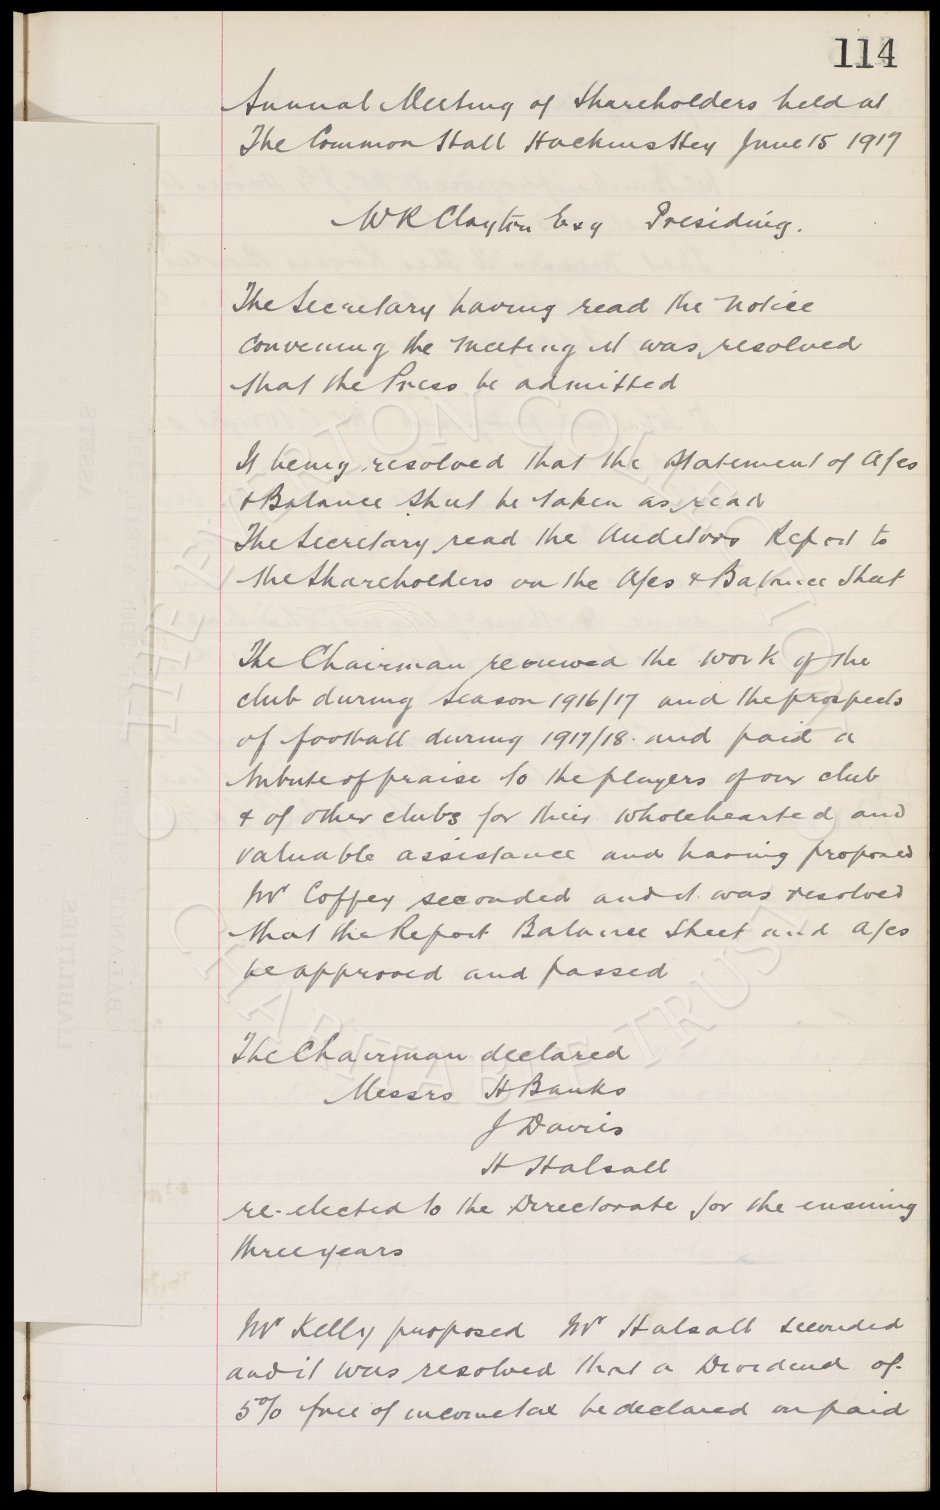 114
Annual Meeting of Shareholders held at
The Common Hall Hackins Hey June 15 1917
W R Clayton Esq Presiding.
The Secretary having read the notice
convening the meeting it was resolved
that the Press be admitted
It being resolved that the Statement of A/cs
& Balance Sheet be taken as read
The Secretary read the Auditors Report to
the Shareholders on the A/cs & Balance Sheet
The Chairman reviewed the work of the
club during season 1916/17 and the prospects
of football during 1917/18. and paid a
tribute of praise to the players of our club
& of other clubs for their wholehearted and
valuable assistance and having proposed
Mr Coffey seconded and it was resolved
that the Report Balance Sheet and A/cs
be approved and passed
The Chairman declared
Messrs H Banks
J Davies
H Halsall
re-elected to the Directorate for the ensuing
three years
Mr Kelly proposed Mr Halsall seconded
and it was resolved that a Dividend of
5% free of income tax be declared on paid
THE EVERTON COLLECTION
CHARITABLE TRUST
ASSETS
LIABILITIES